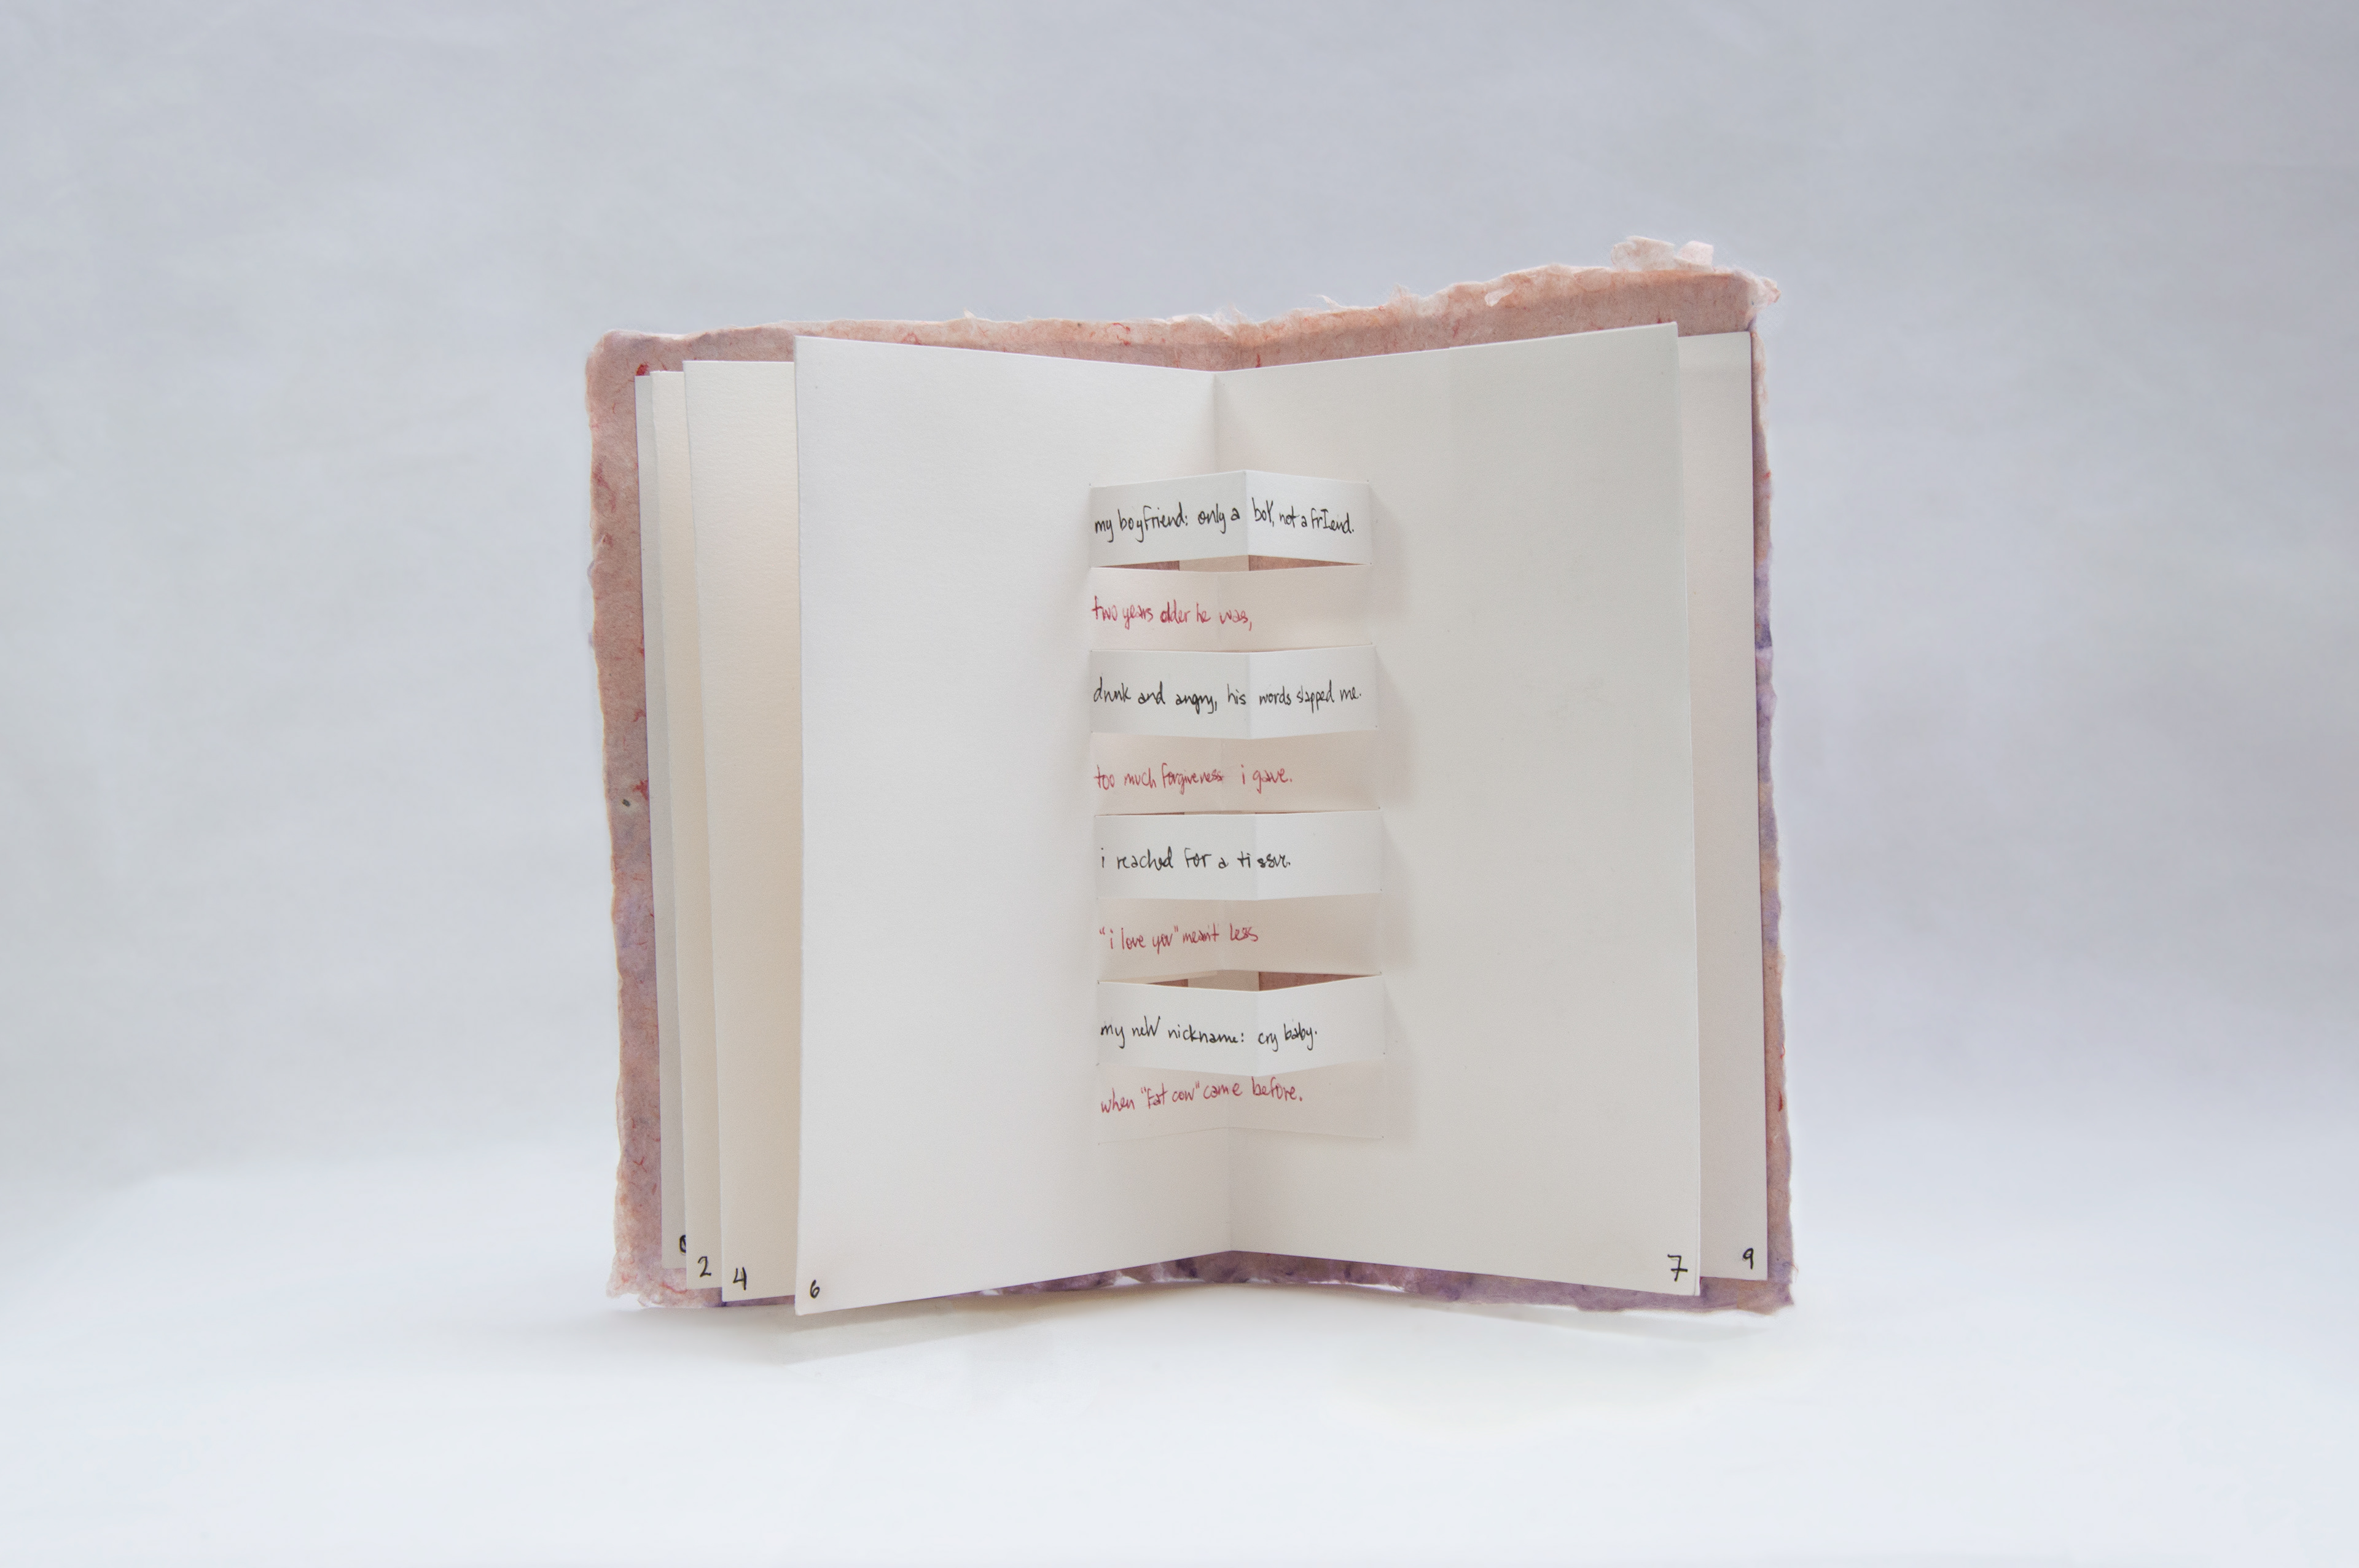 my boyfriend: only a boY, not a frIend.
two years older he was,
drunk and angry, his words slapped me.
too much forgiveness i gave.
i reached for a tissue.
"i love you" meant less
my neW nickname: cry baby.
when "fat cow" came before.
2
4
6
7
9